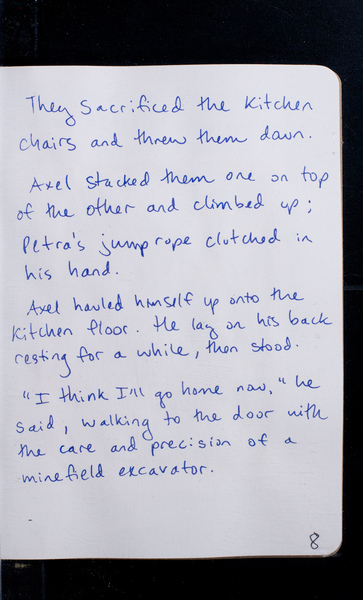 They sacrificed the kitchen
chairs and threw them down.
Axel stacked them one on top
of the other and climbed up;
Petra's jumprope clutched in
his hand.
Axel hauled himself up onto the
kitchen floor. He lay on his back
resting for a while, then stood.
"I think I'll go home now," he
said, walking to the door with
the care and precision of a
minefield excavator.
8